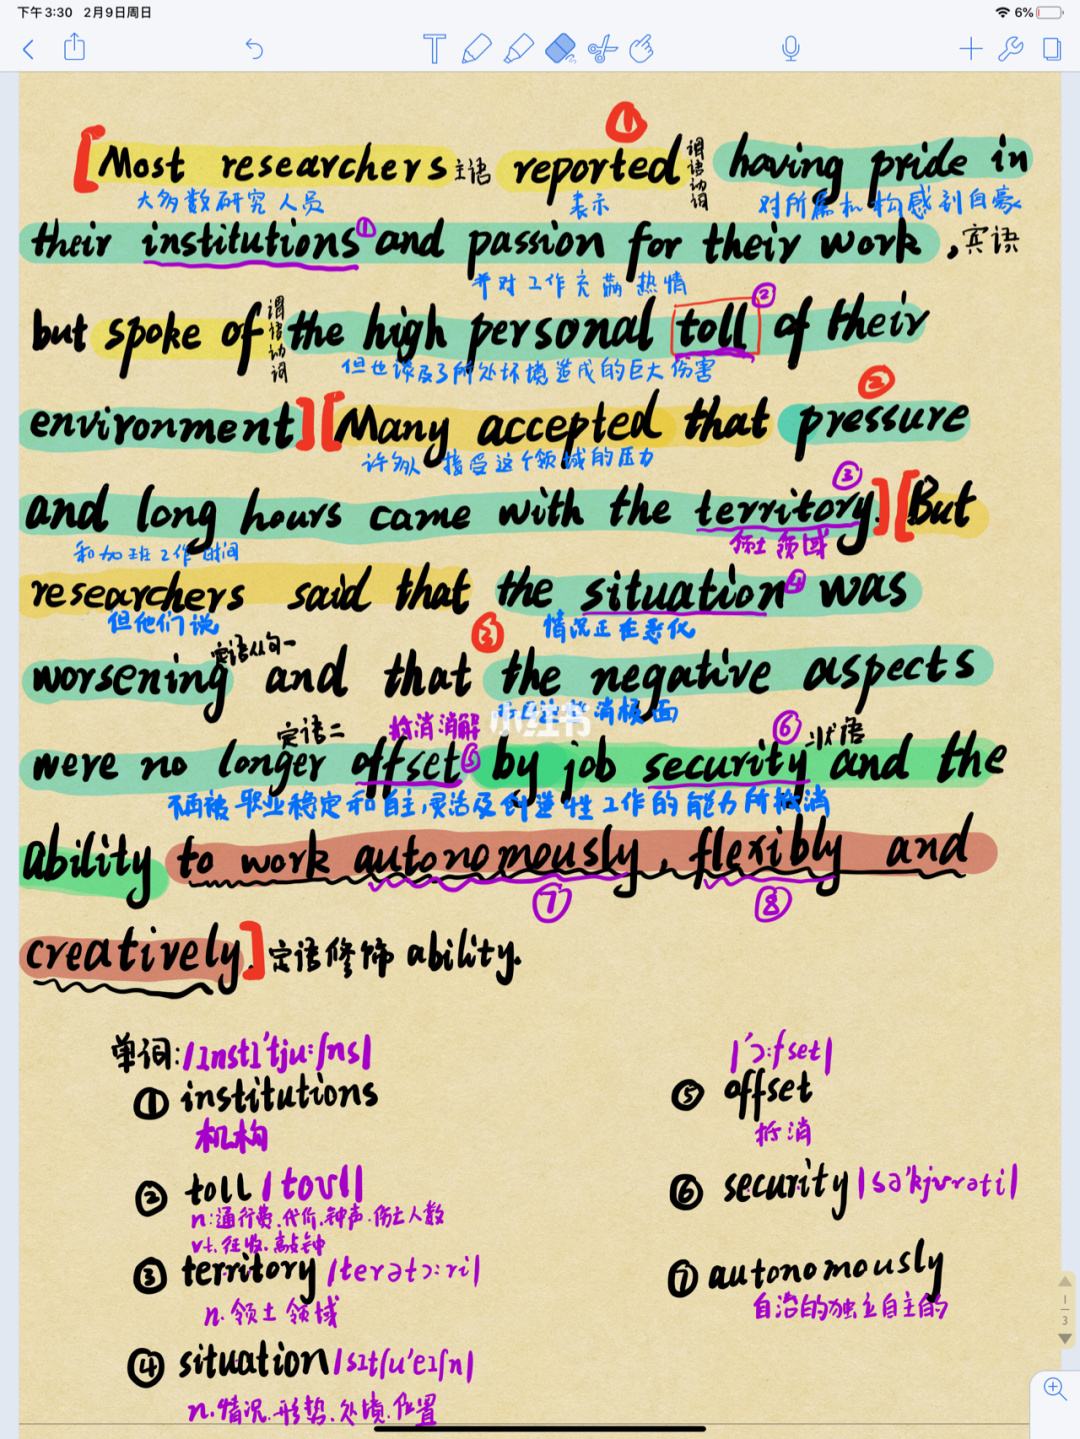 下午3:30 2月9日周日
6%
①
[Most researchers 主语 reported 谓语动词 having pride in
大多数研究人员 表示 对所属机构感到自豪
their institutions① and passion for their work, 宾语
并对工作充满热情
but spoke of 谓语动词 the high personal toll② of their
但也谈及了所处环境造成的巨大伤害
②
environment][Many accepted that pressure
许多人接受这个领域的压力
and long hours came with the territory③.][But
和加班工作时间 领土 领域
researchers said that the situation④ was
但他们说 情况正在恶化
定语从句一 ③
worsening and that the negative aspects
消极面
小红书
定语二 抵消消解 状语
were no longer offset⑤ by job security⑥ and the
不再被职业稳定和自主,灵活及创造性工作的能力所抵消
ability to work autonomously, flexibly and
⑦ ⑧
creatively.] 定语修饰 ability.
单词: /ɪnstɪ'tju:ʃns/
① institutions
机构
② toll /toʊl/
n:通行费.代价.钟声.伤亡人数
vt.征收.敲钟
③ territory /terətɔ:ri/
n.领土 领域
④ situation /sɪtʃu'eɪʃn/
n.情况.形势.处境.位置
/'ɔ:fset/
⑤ offset
抵消
⑥ security /sə'kjʊrəti/
⑦ autonomously
自治的独立自主的
1
3